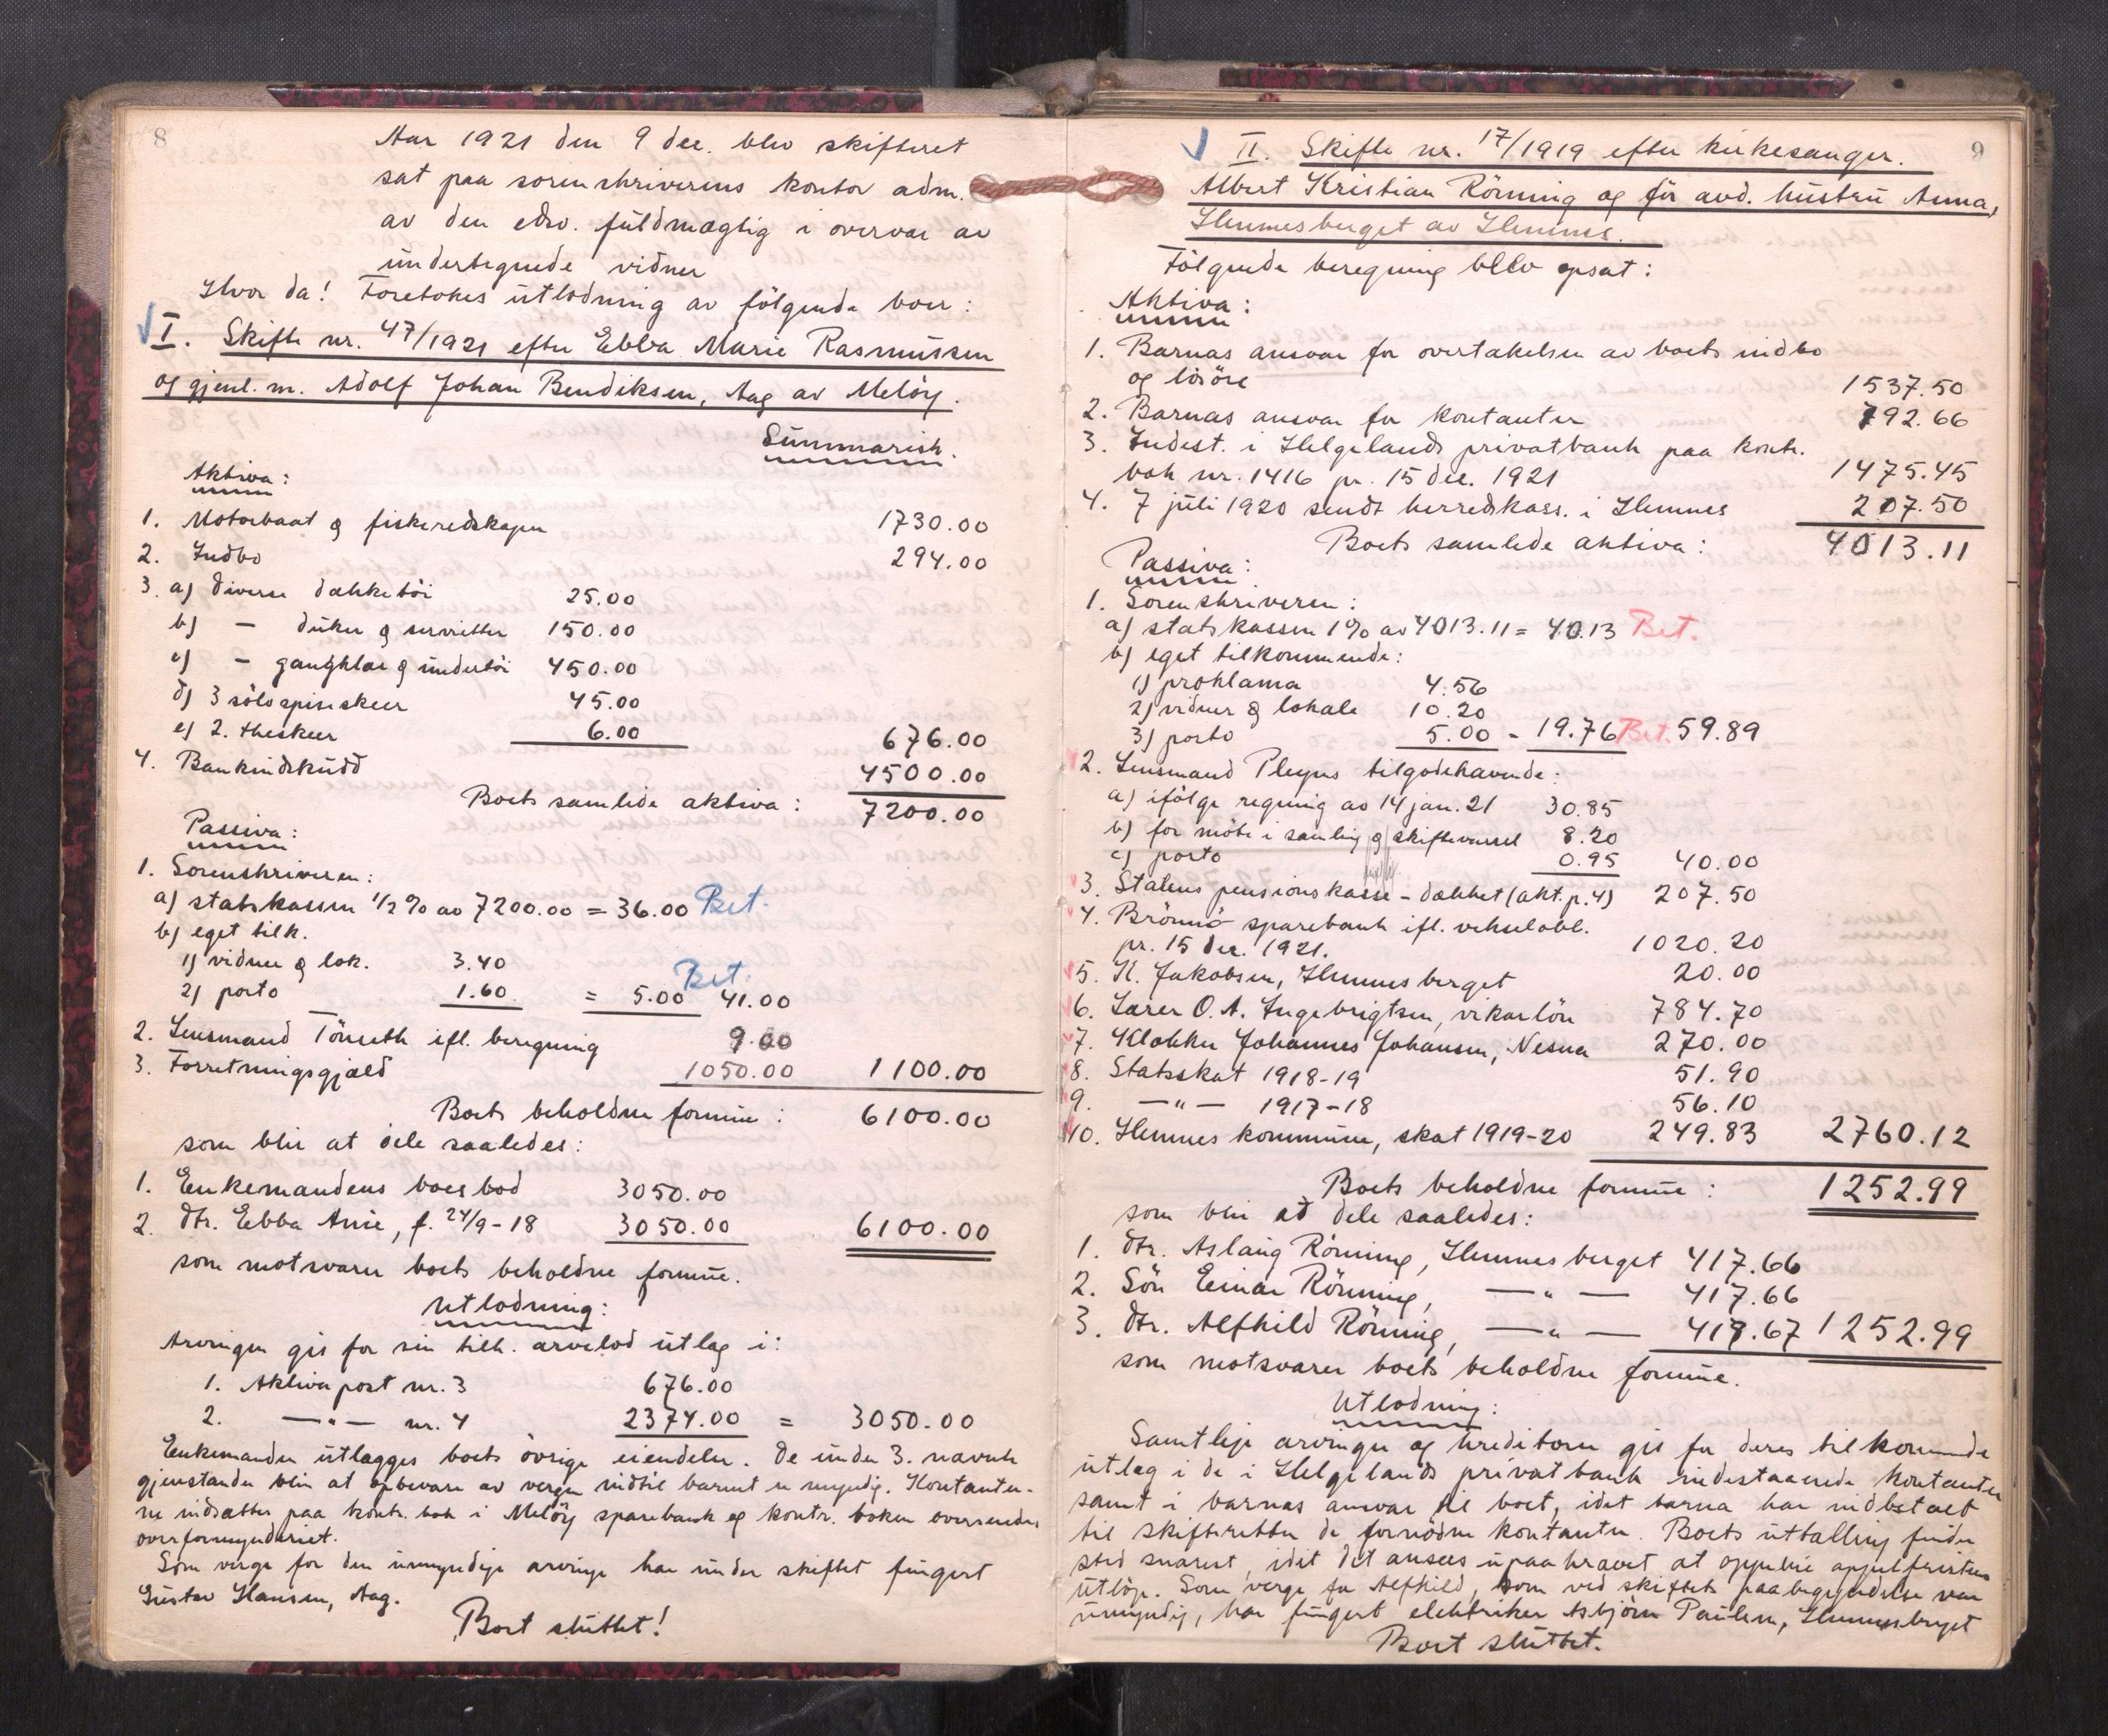 8
Aar 1921 den 9 dec. blev skifteret
sat paa sorenskriverens kontor adm.
av den edsv. fuldmægtig i overvær av
undertegnede vidner
Hvor da! Foretokes utlodning av følgende boer:
I. Skifte nr. 47/1921 efter Ebba Marie Rasmussen
og gjenl. m. Adolf Johan Bendiksen, Aag av Meløy.
Summarisk.
Aktiva:
1. Motorbaat & fiskeredskaper 1730.00
2. Indbo 294.00
3. a) diverse dækketøi 25.00
b) — duker & servietter 150.00
c) — gangklær & undertøi 450.00
d) 3 sølvspiseskeer 45.00
e) 2. theskeer 6.00 676.00
4. Bankindskudd 4500.00
Boets samlede aktiva: 7200.00
Passiva:
1. Sorenskriveren:
a) statskassen 1/2 % av 7200.00 = 36.00 Bet.
b) eget tilk.
1) vidner & lok. 3.40
2) porto 1.60 = 5.00 Bet. 41.00
2. Lensmand ifl. beregning 9.00
3. Forretningsgjæld 1050.00 1100.00
Boets beholdne formue: 6100.00
som blir at dele saaledes:
1. Enkemandens boeslod 3050.00
2. dtr. Ebba Anie, f. 24/9-18 3050.00 6100.00
som motsvarer boets beholdne formue.
Utlodning:
Arvingen gis for sin tilk. arvelod utlæg i:
1. Aktiva post nr. 3 676.00
2. —"— nr. 4 2374.00 = 3050.00
Enkemanden utlægges boets øvrige eiendeler. De under 3. nævnte
gjenstander blir at opbevare av vergen indtil barnet er myndig. Kontanter-
ne indsættes paa kontr. bok i Meløy sparebank og kontr. boken oversendes
overformynderiet.
Som verge for den umyndige arving har under skiftet fungert
Gustav Hansen, Aag.
Boet sluttet!
9
II. Skifte nr. 17/1919 efter kirkesanger.
Albert Kristian Rönning og før avd. hustru Anna,
Hemnesberget av Hemnes.
Følgende beregning blev opsat:
Aktiva:
1. Barnas ansvar for overtakelsen av boets indbo
og løsøre 1537.50
2. Barnas ansvar for kontanter 792.66
3. Indest. i Helgelands privatbank paa kontr.
bok nr. 1416 pr. 15 dec. 1921 1475.45
4. 7 juli 1920 sendt herredskass. i Hemnes 207.50
Boets samlede aktiva: 4013.11
Passiva:
1. Sorenskriveren:
a) statskassen 1% av 4013.11 = 40.13 Bet.
b) eget tilkommende:
1) proklama 4.56
2) vidner & lokale 10.20
3) porto 5.00 - 19.76 Bet. 59.89
2. Lensmand Pleyns tilgodehavende:
a) ifølge regning av 14 jan. 21 30.85
b) for møte i samling & skiftevarsel 8.20
c) porto 0.95 40.00
3. Statens pensionskasse - dækket (akt. p. 4) 207.50
4. Brönnö sparebank ifl. vekselobl.
pr. 15 dec. 1921. 1020.20
5. K. Jakobsen, Hemnesberget 20.00
6. Lærer O. A. Ingebrigtsen, vikarløn 784.70
7. Klokker Johannes Johansen, Nesna 270.00
8. Statsskat 1918-19 51.90
9. —"— 1917-18 56.10
10. Hemnes kommune, skat 1919-20 249.83 2760.12
Boets beholdne formue: 1252.99
som blir at dele saaledes:
1. dtr. Aslaug Rönning, Hemnesberget 417.66
2. Søn Einar Rönning, —"— 417.66
3. dtr. Alfhild Rönning, —"— 417.67 1252.99
som motsvarer boets beholdne formue.
Utlodning:
Samtlige arvinger og kreditorer gis for deres tilkommende
utlæg i de i Helgelands privatbank indestaaende kontanter
samt i barnas ansvar til boet, idet barna har indbetalt
til skifteretten de fornødne kontanter. Boets utbetaling finder
sted snarest, idet det ansees upaakrævet at oppebie appelfristens
utløp. Som verge for Alfhild, som ved skiftets paabegyndelse var
umyndig, har fungert elektriker Asbjørn Paulsen, Hemnesberget
Boet sluttet.